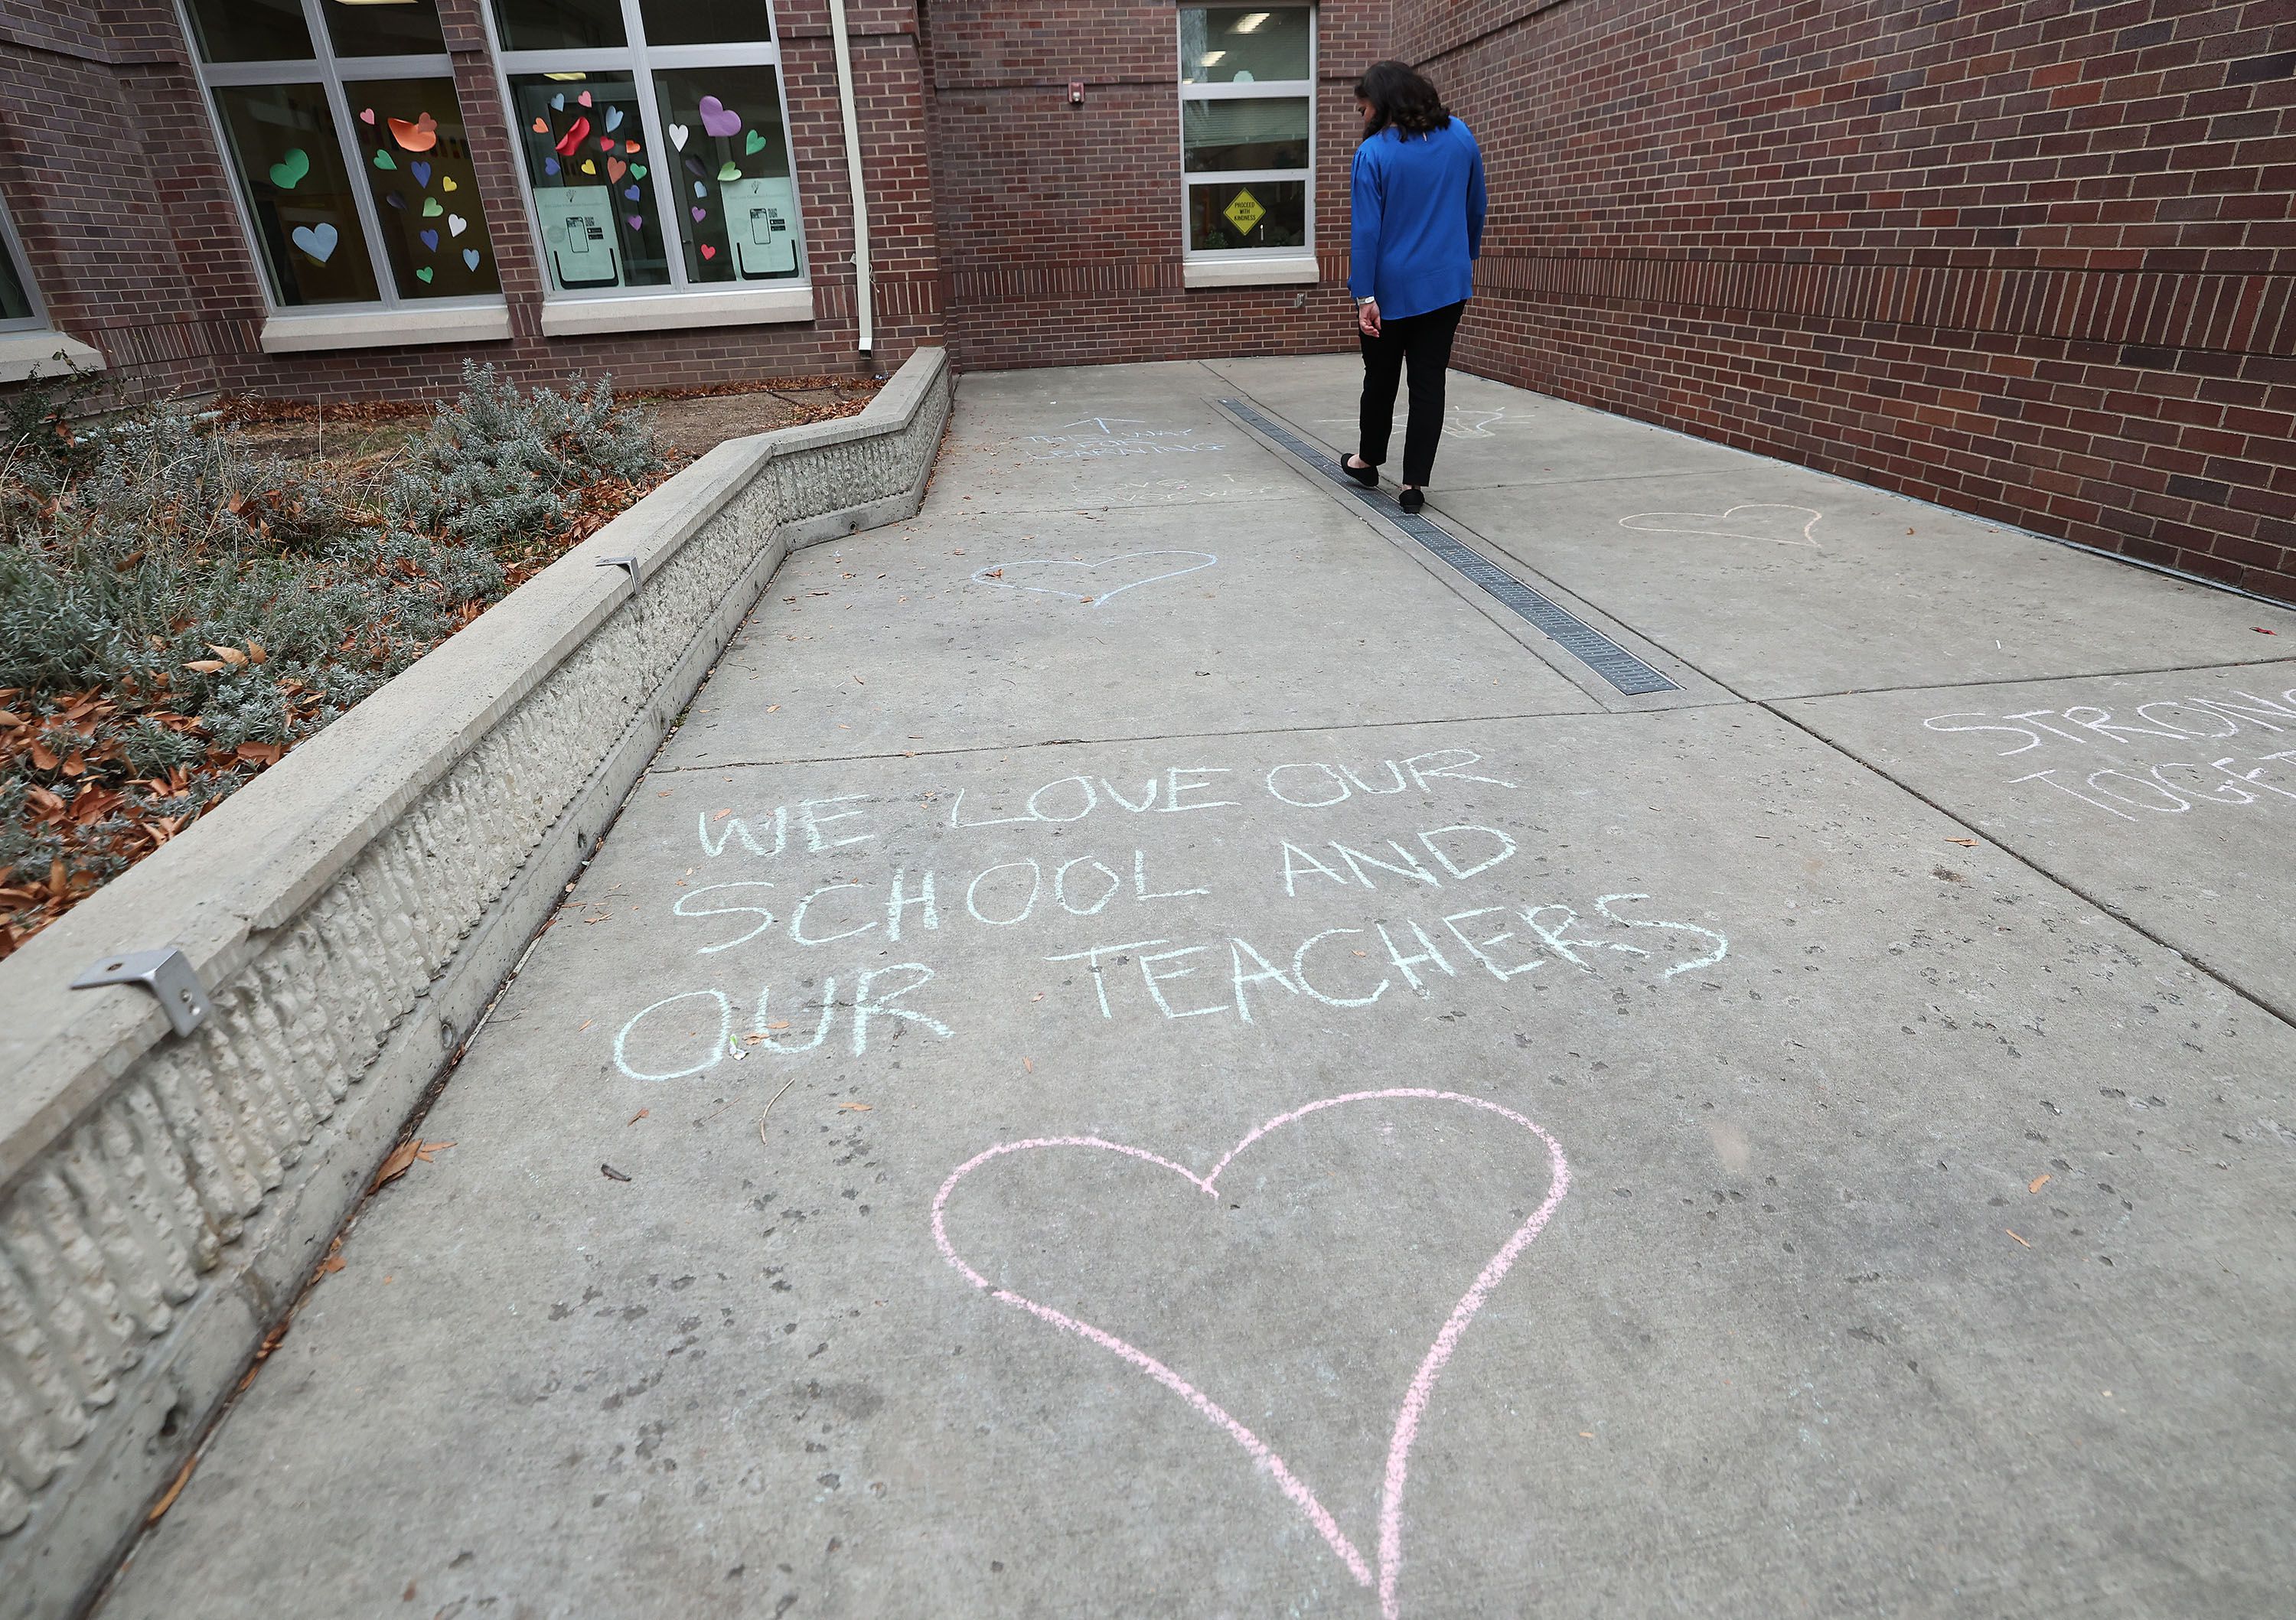 PROCEED
WITH
KINDNESS
THIS WAY
FOR
LEARNING
WE LOVE OUR
SCHOOL AND
OUR TEACHERS
STRONG
TOGET